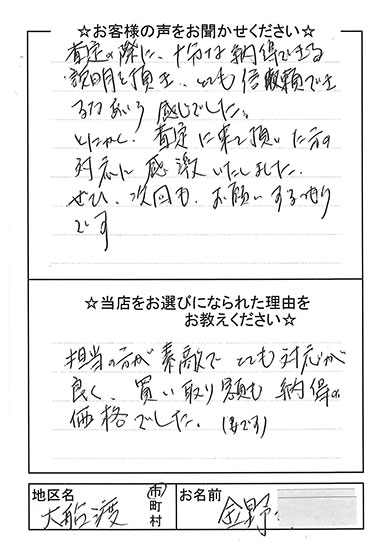 ☆お客様の声をお聞かせください☆
査定の際に、十分な納得できる
説明を頂き、とても信頼でき
る
感じでした。
とにかく、査定に来て頂いた方の
対応に感激いたしました。
ぜひ、次回も、お願いするつもり
です
☆当店をお選びになられた理由を
お教えください☆
担当の方が素敵で とても対応が
良く、買い取り額も納得の
価格でした。(まです)
地区名
大船渡
市
町
村
お名前
金野